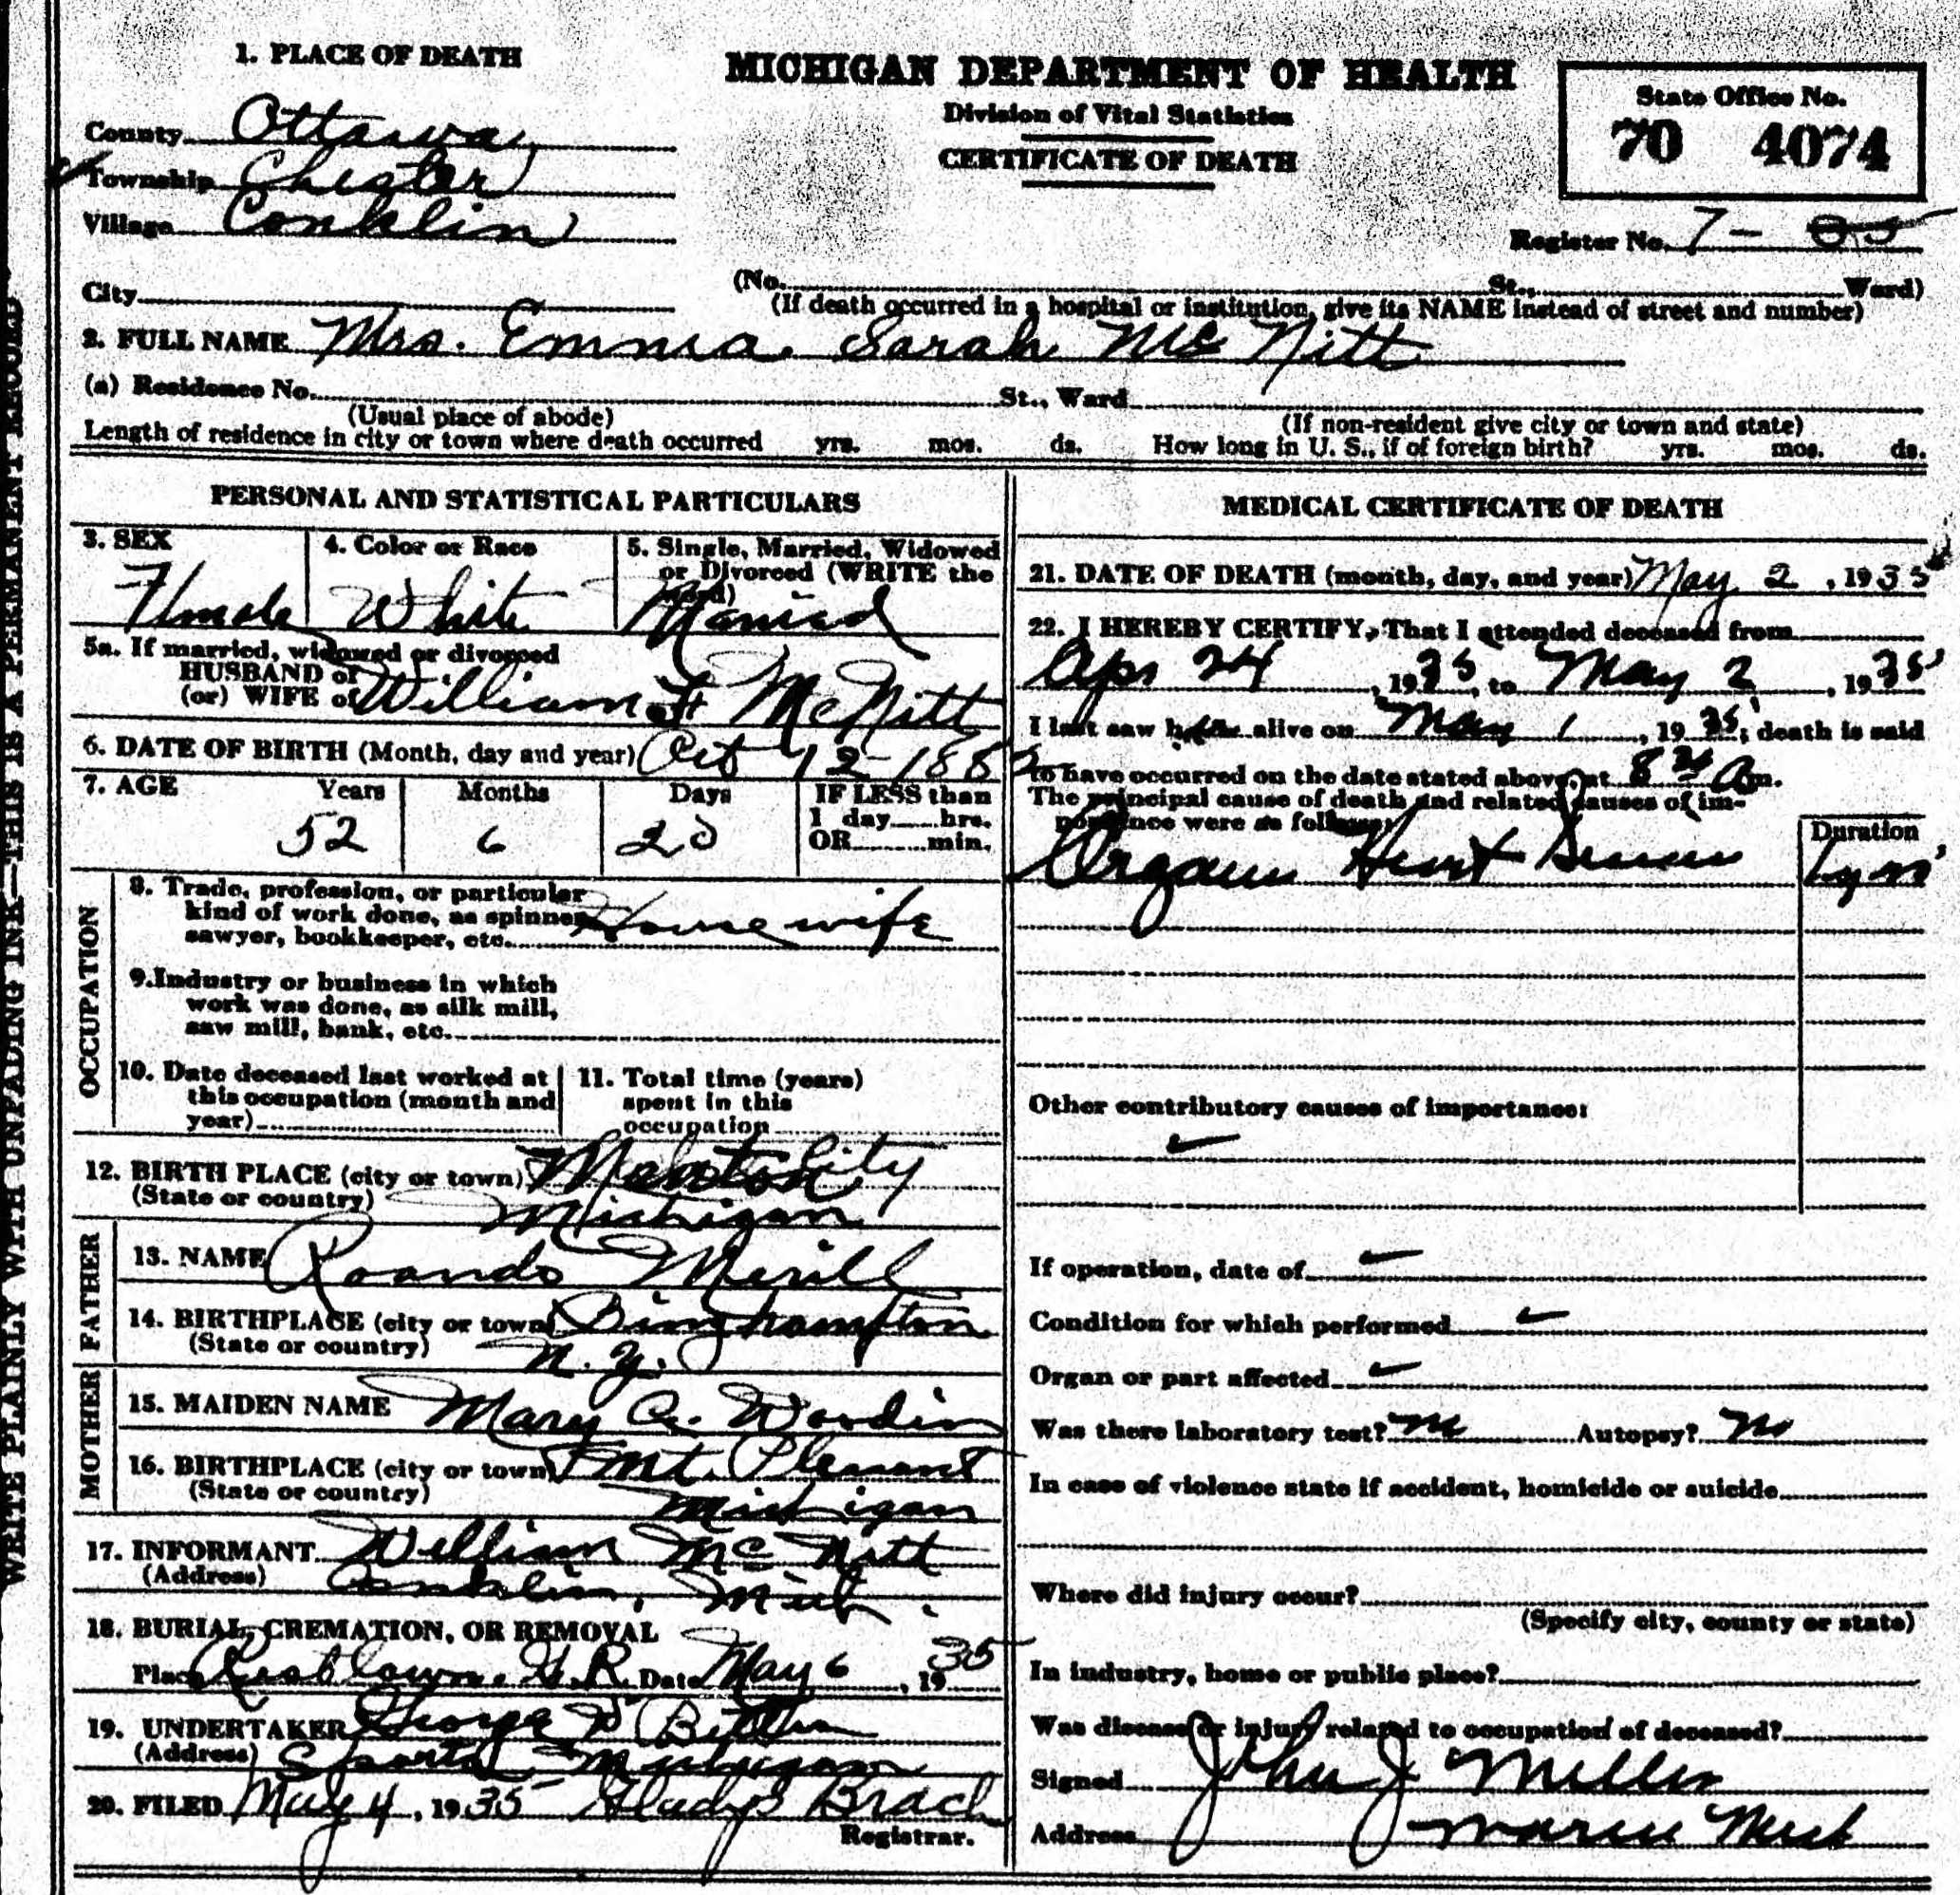 1. PLACE OF DEATH
MICHIGAN DEPARTMENT OF HEALTH
Division of Vital Statistics
CERTIFICATE OF DEATH
State Office No.
70 4074
County Ottawa
Township Chester
Village Conklin
Register No. 7-
City
(No. St., Ward)
(If death occurred in a hospital or institution, give its NAME instead of street and number)
2. FULL NAME Mrs. Emma Sarah McNitt
(a) Residence No. St., Ward
(Usual place of abode) (If non-resident give city or town and state)
Length of residence in city or town where death occurred yrs. mos. ds. How long in U. S., if of foreign birth? yrs. mos. ds.
PERSONAL AND STATISTICAL PARTICULARS
3. SEX 4. Color or Race 5. Single, Married, Widowed
or Divorced (WRITE the
word)
Female White Married
5a. If married, widowed or divorced
HUSBAND of
(or) WIFE of William F McNitt
6. DATE OF BIRTH (Month, day and year) Oct 12 1882
7. AGE Years Months Days IF LESS than
1 day hrs.
OR min.
52 6 20
OCCUPATION
8. Trade, profession, or particular
kind of work done, as spinner,
sawyer, bookkeeper, etc. Housewife
9. Industry or business in which
work was done, as silk mill,
saw mill, bank, etc.
10. Date deceased last worked at
this occupation (month and
year)
11. Total time (years)
spent in this
occupation
12. BIRTH PLACE (city or town) City
(State or country) Michigan
FATHER
13. NAME Merill
14. BIRTHPLACE (city or town) Binghampton
(State or country) N. Y.
MOTHER
15. MAIDEN NAME Mary Woodin
16. BIRTHPLACE (city or town) Mt. Plesant
(State or country) Michigan
17. INFORMANT William McNitt
(Address) Conklin, Mich.
18. BURIAL, CREMATION, OR REMOVAL
Place Restlawn. G. R. Date May 6, 1935
19. UNDERTAKER George
(Address) Sparta Michigan
20. FILED May 4, 1935 Gladys Brach
Registrar.
MEDICAL CERTIFICATE OF DEATH
21. DATE OF DEATH (month, day, and year) May 2, 1935
22. I HEREBY CERTIFY, That I attended deceased from
Apr 24, 1935, to May 2, 1935
I last saw her alive on May 1, 1935; death is said
to have occurred on the date stated above, at 8 30 A m.
The principal cause of death and related causes of im-
portance were as follows:
Duration
Organic Heart Disease yrs
Other contributory causes of importance:
If operation, date of
Condition for which performed
Organ or part affected
Was there laboratory test? no Autopsy? no
In case of violence state if accident, homicide or suicide
Where did injury occur?
(Specify city, county or state)
In industry, home or public place?
Was disease or injury related to occupation of deceased?
Signed John J Miller
Address Marne Mich
WRITE PLAINLY WITH UNFADING INK—THIS IS A PERMANENT RECORD